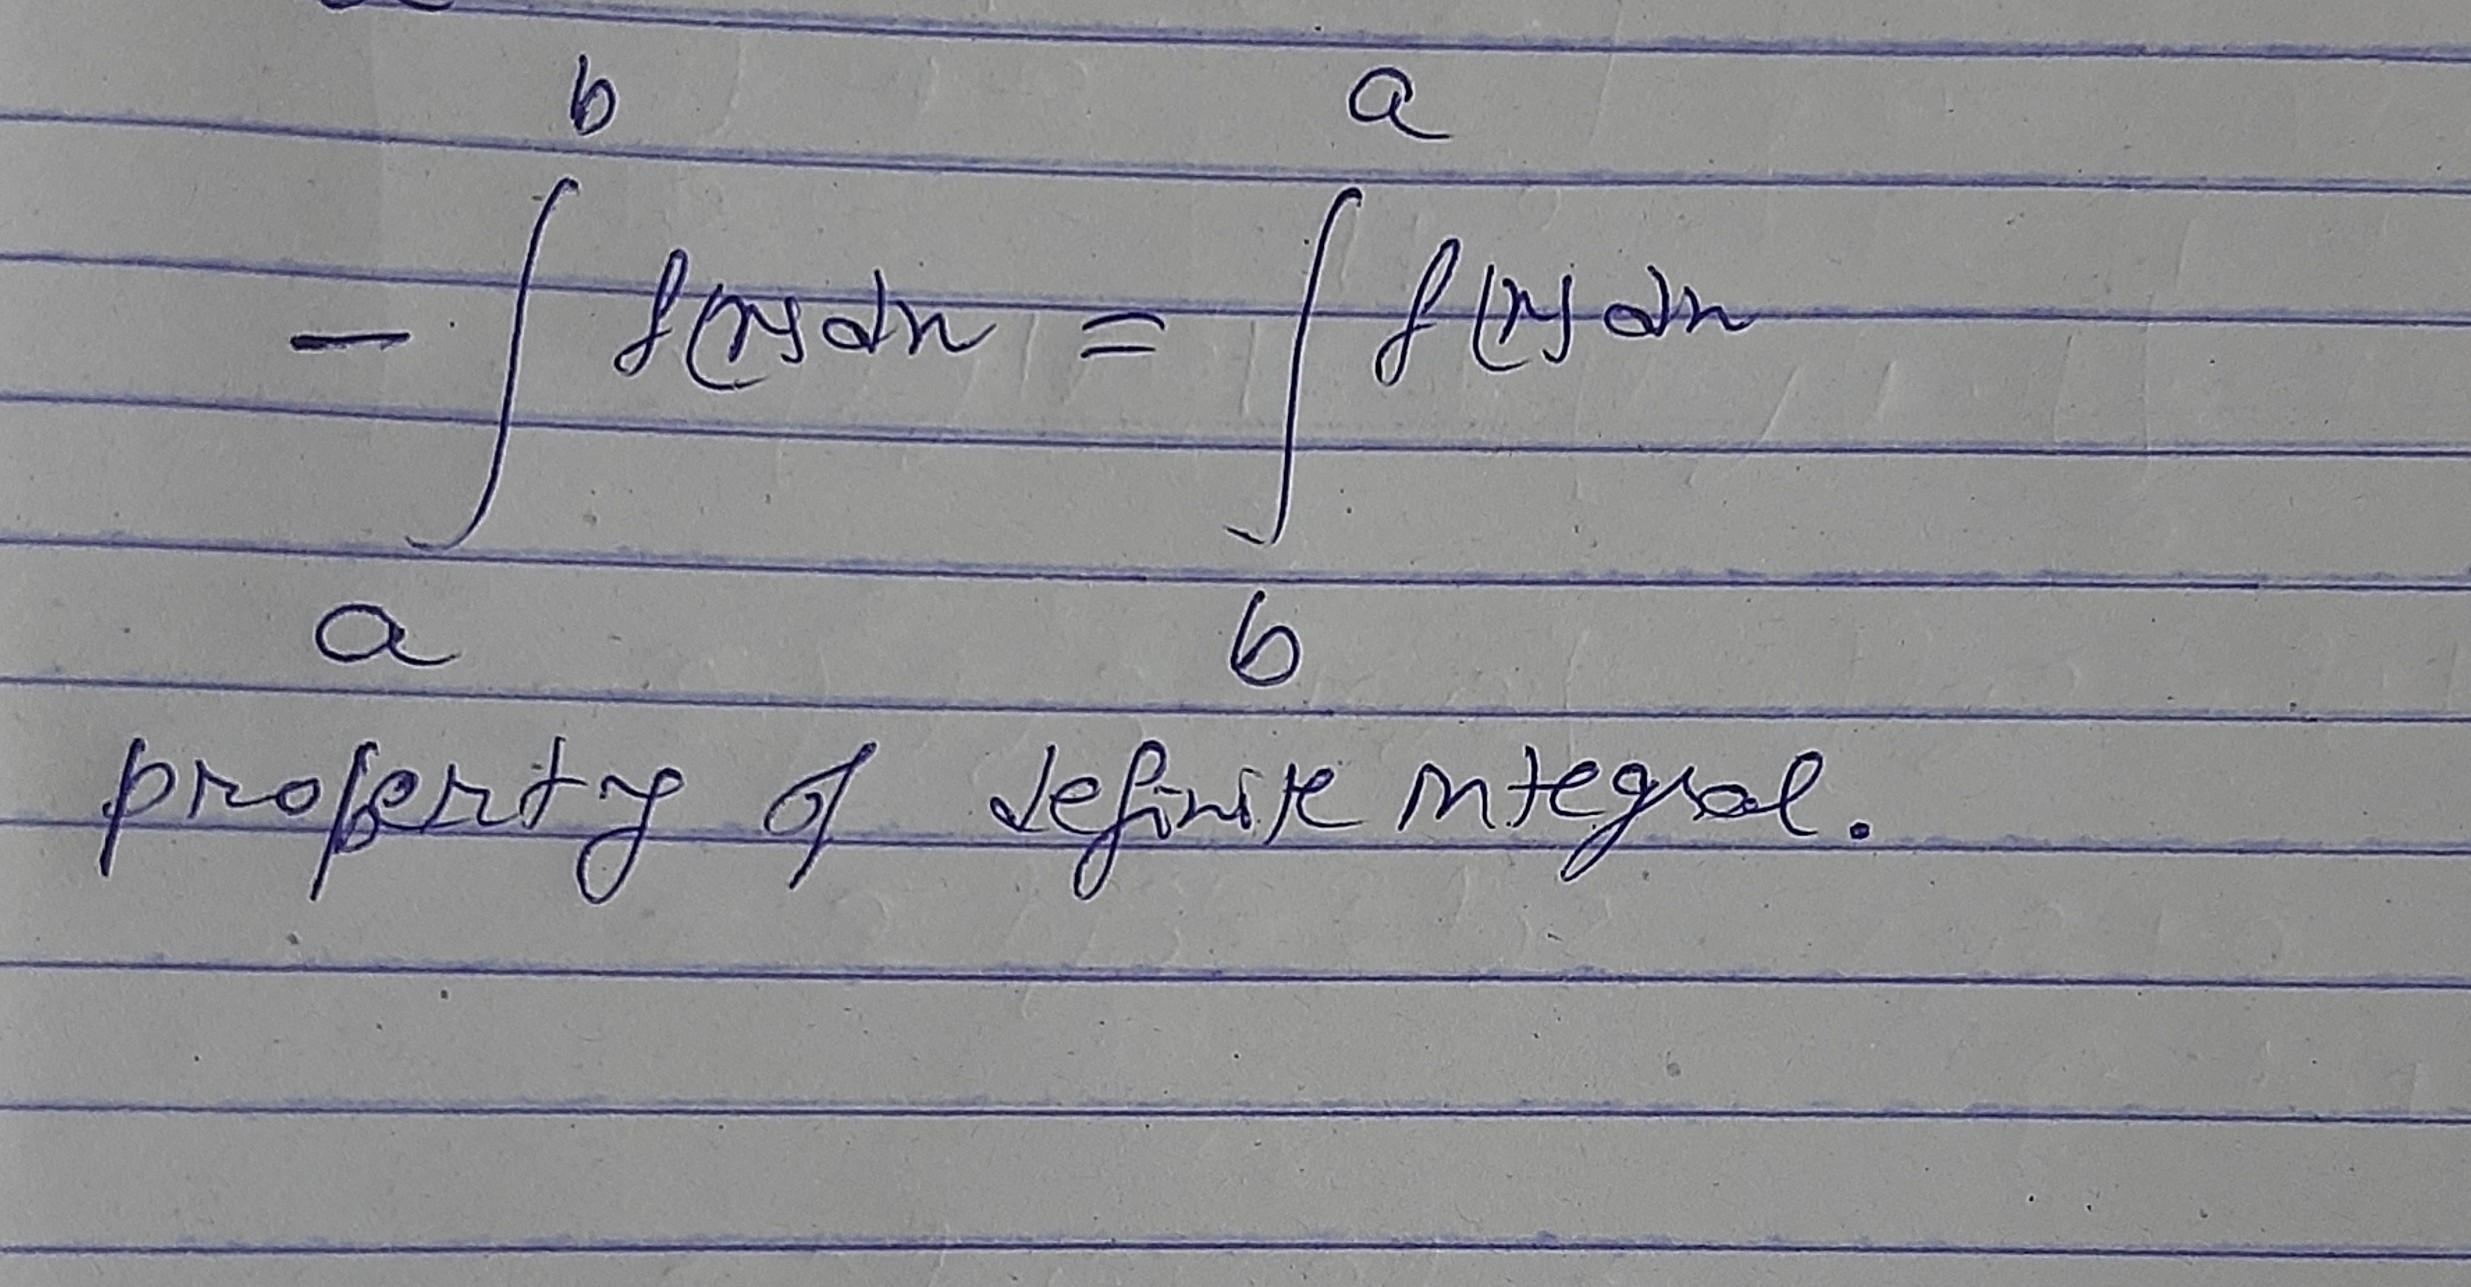 - ∫_a^b f(x)dx = ∫_b^a f(x)dx
property of definite integral.